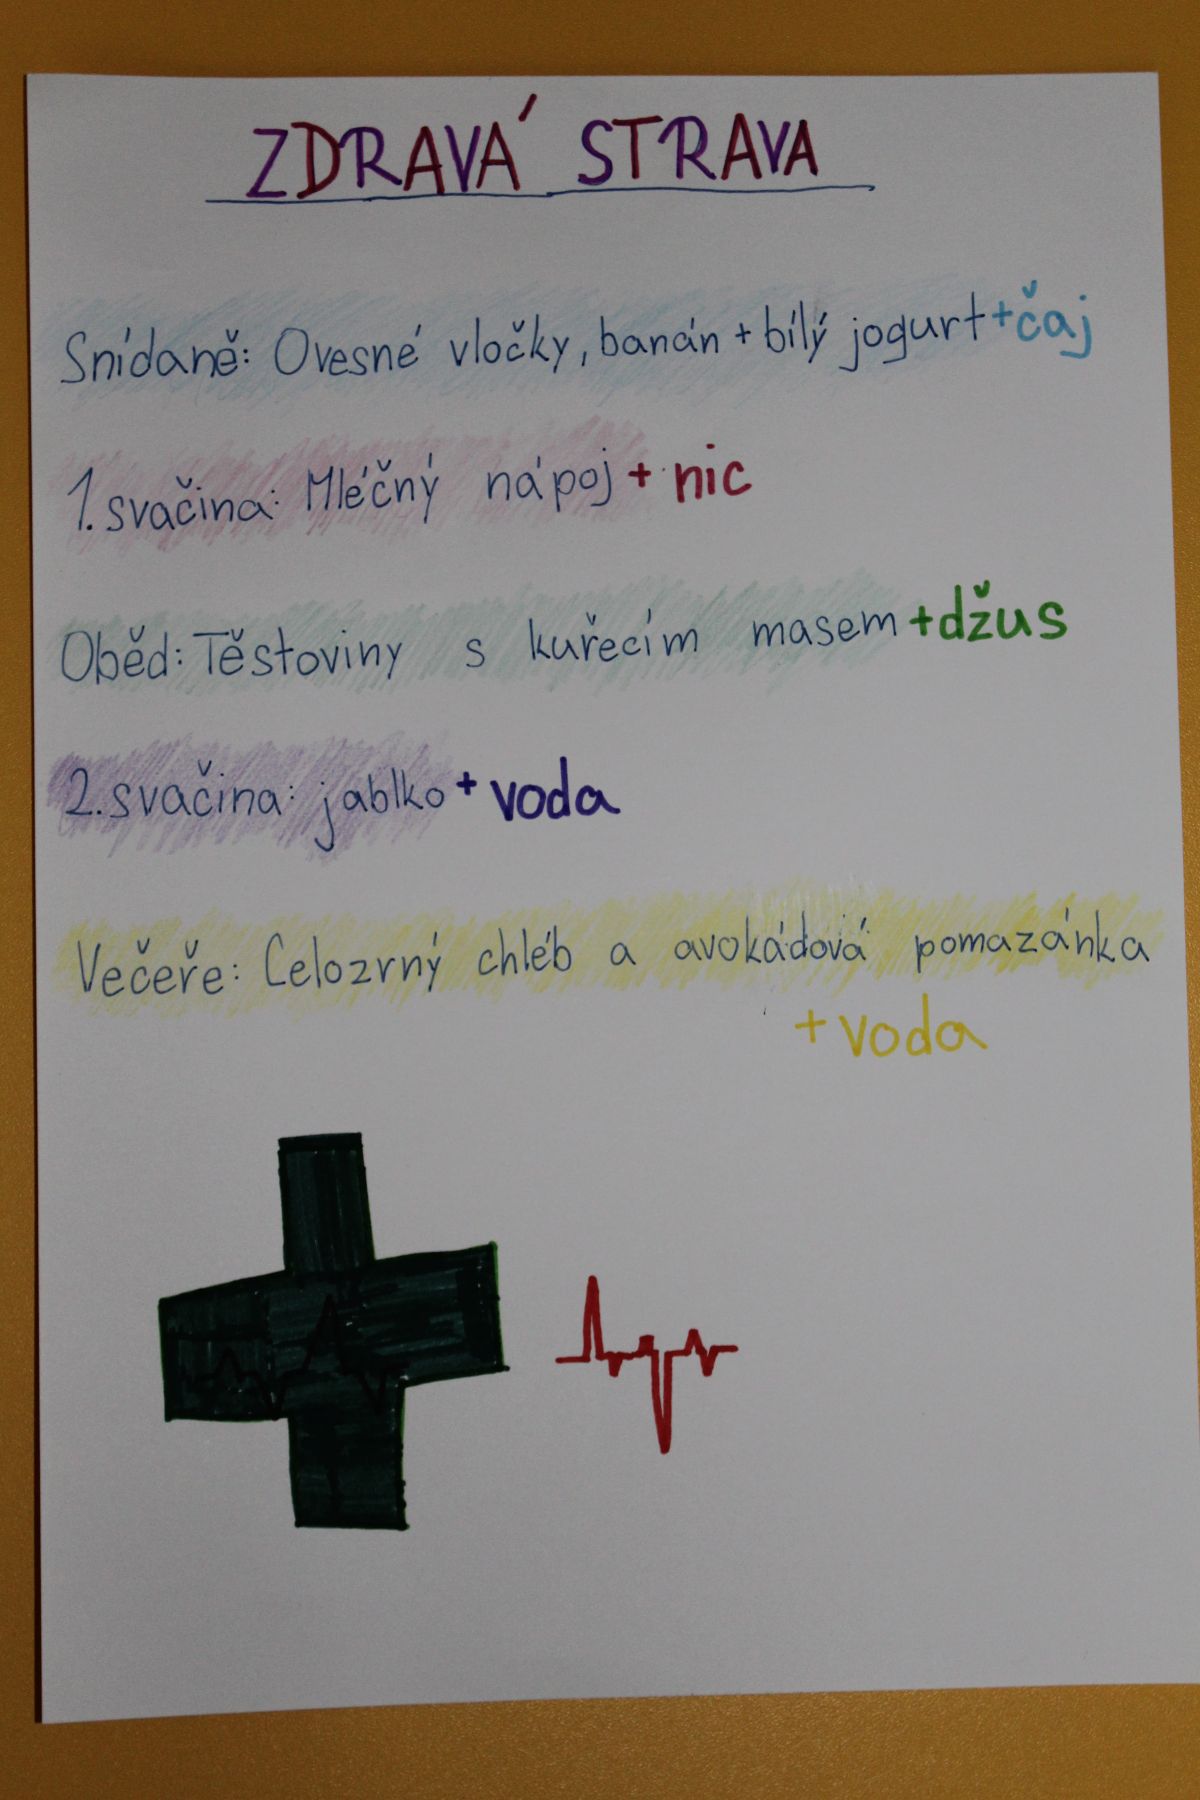 ZDRAVÁ STRAVA
Snídaně: Ovesné vločky, banán + bílý jogurt + čaj
1. svačina: Mléčný nápoj + nic
Oběd: Těstoviny s kuřecím masem + džus
2. svačina: jablko + voda
Večeře: Celozrný chléb a avokádová pomazánka
+ voda